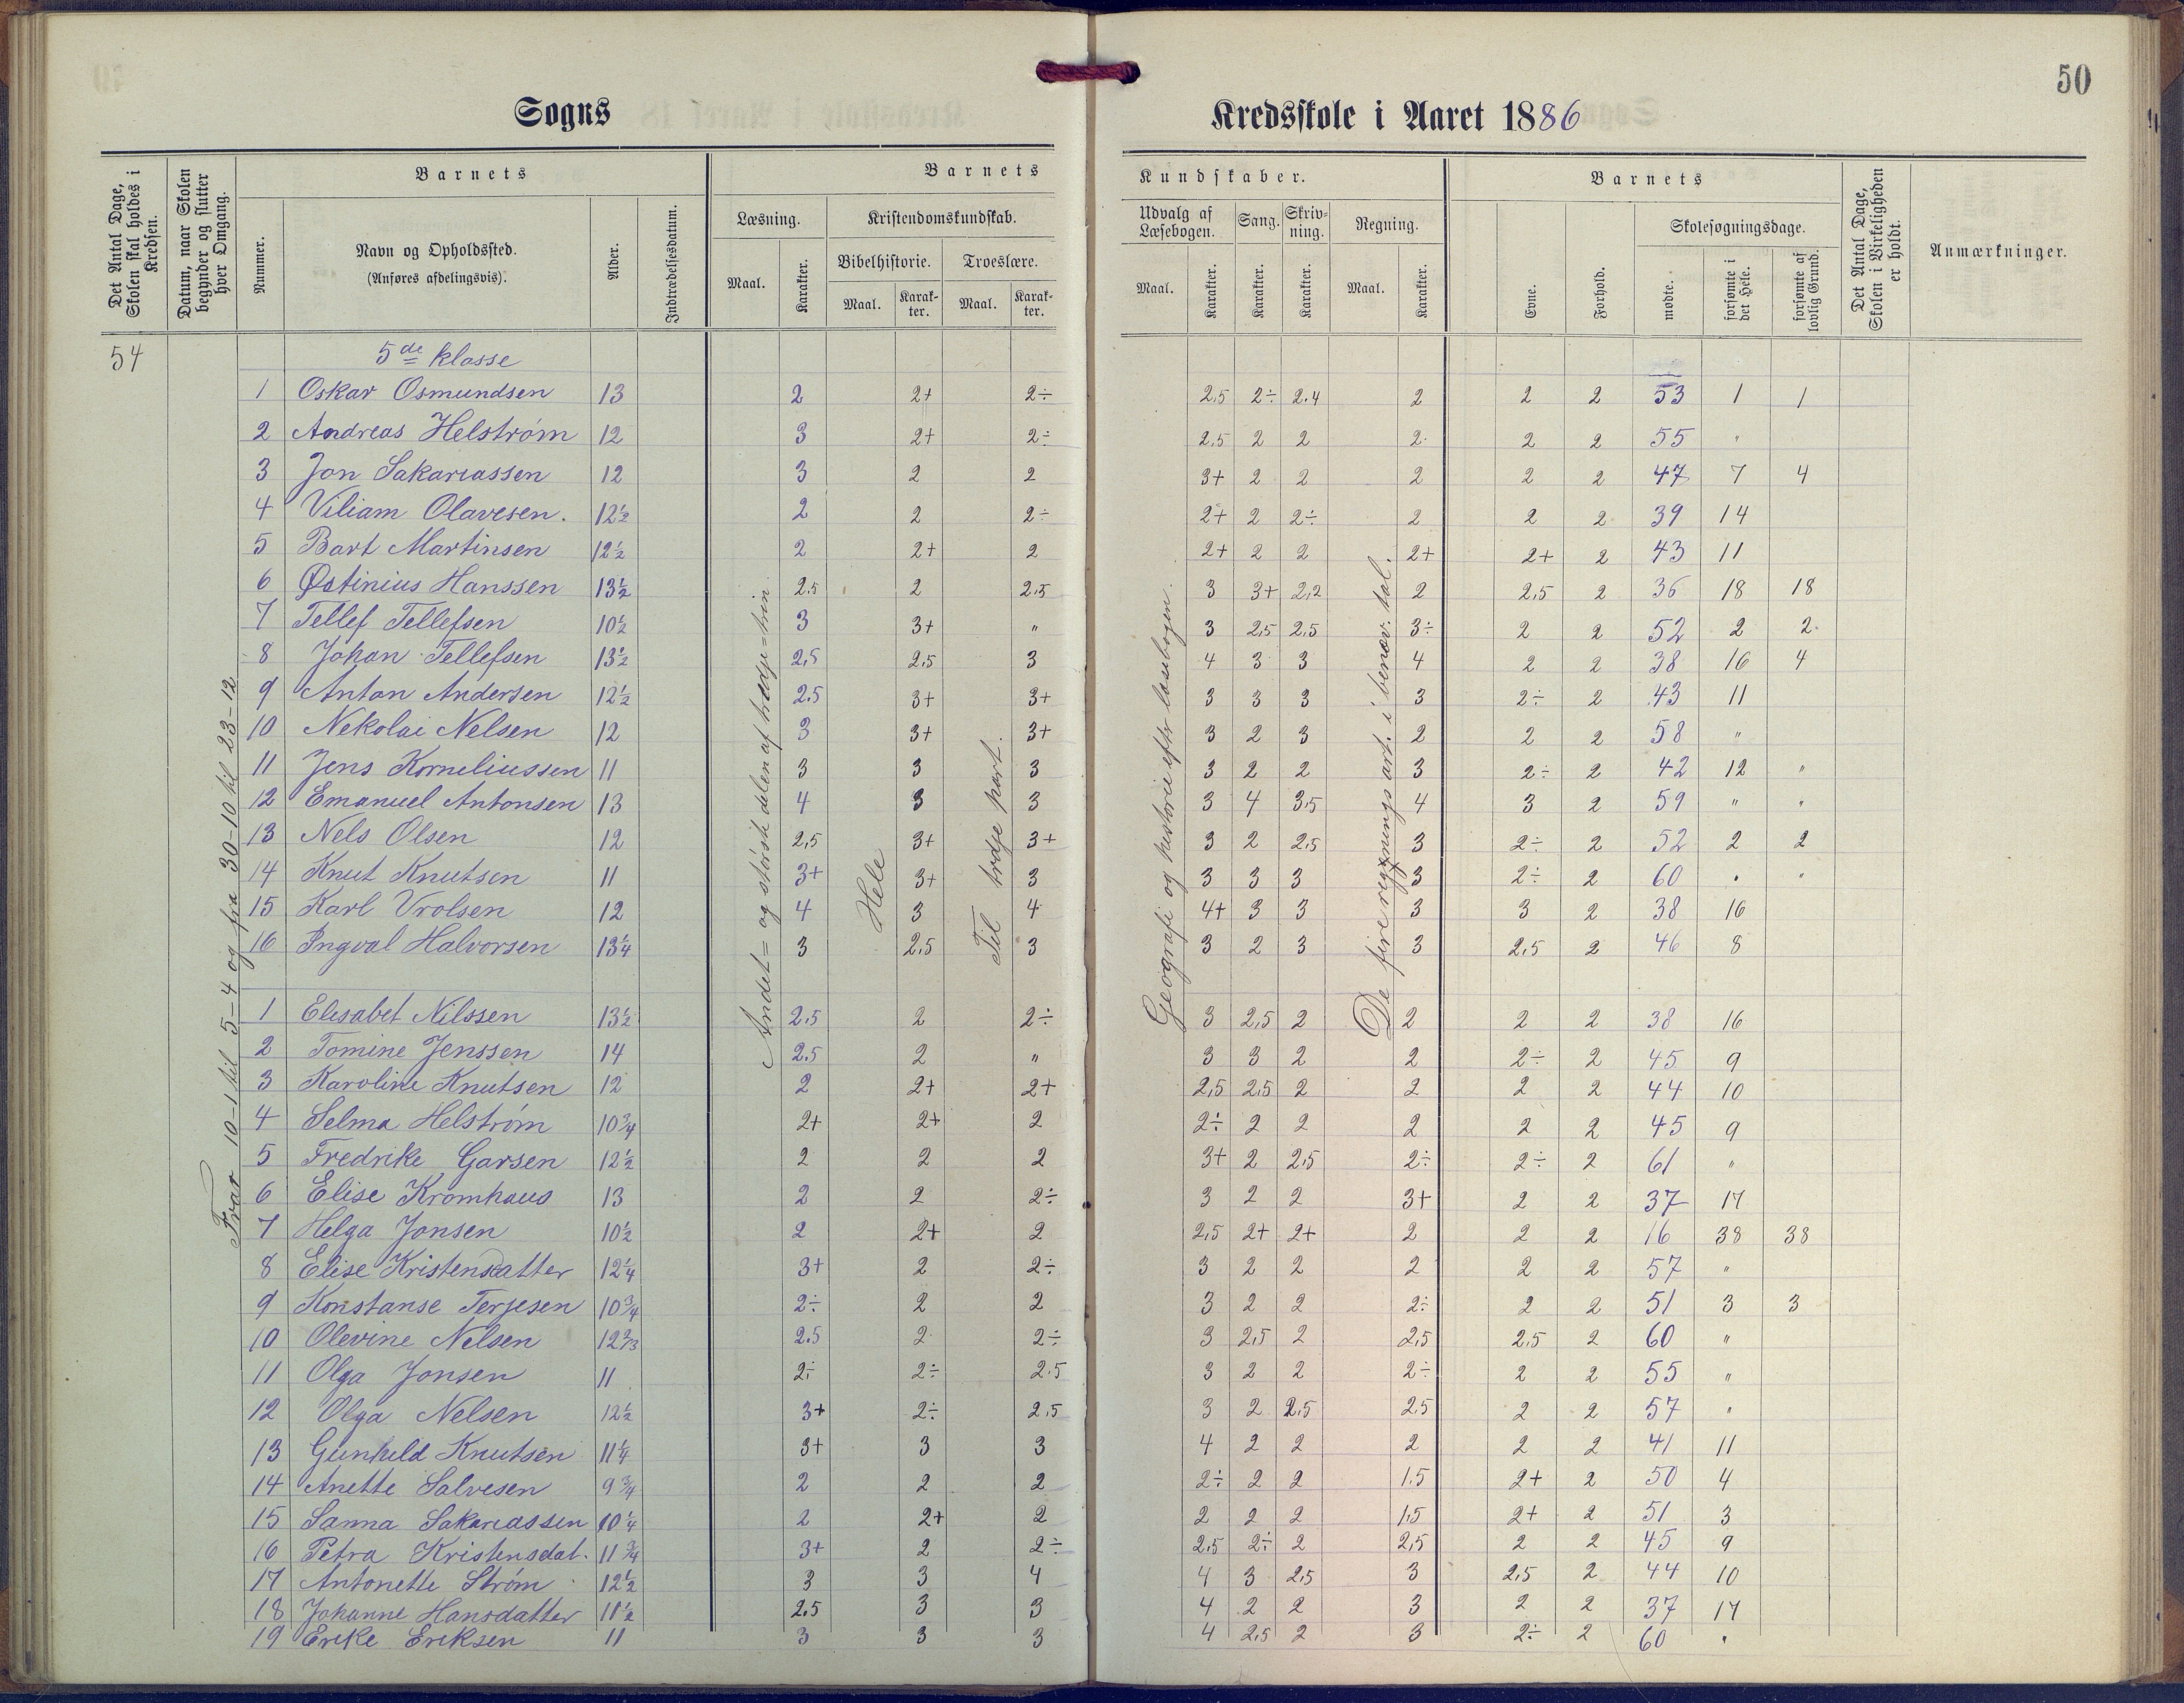 50
Sogns
Kredsskole i Aaret 1886
Det Antal Dage, Skolen skal holdes i Kredsen.
Datum, naar Skolen begynder og slutter hver Omgang.
Barnets
Nummer.
Navn og Opholdssted.
(Anføres afdelingsvis).
Alder.
Indtrædelsesdatum.
Barnets
Læsning.
Maal.
Karakter.
Kristendomskundskab.
Bibelhistorie.
Maal.
Karakter.
Troeslære.
Maal.
Karakter.
Kundskaber.
Udvalg af Læsebogen.
Maal.
Karakter.
Sang.
Karakter.
Skrivning.
Karakter.
Regning.
Maal.
Karakter.
Barnets
Evne.
Forhold.
Skolesøgningsdage.
mødte.
forsømte i det Hele.
forsømte af lovlig Grund.
Det Antal Dage, Skolen i Virkeligheden er holdt.
Anmærkninger.
54
Fra 10-1 til 5-4 og fra 30-10 til 23-12
Andet= og største delen af tredje=trin
Hele
Til tredje part.
Geografi og historie efter læsebogen.
De fire regningsart. i benæv. tal.
5de klasse
1 Oskar Osmundsen 13 2 2+ 2÷ 2,5 2÷ 2.4 2 2 2 53 1 1
2 Andreas Helstrøm 12 3 2+ 2÷ 2,5 2 2 2 2 2 55 "
3 Jon Sakariassen 12 3 2 2 3+ 2 2 2 2 2 47 7 4
4 Viliam Olavesen. 12½ 2 2 2÷ 2+ 2 2÷ 2 2 2 39 14
5 Bart Martinsen 12½ 2 2+ 2 2+ 2 2 2+ 2+ 2 43 11
6 Østinius Hanssen 13½ 2.5 2 2,5 3 3+ 2,2 2 2,5 2 36 18 18
7 Tellef Tellefsen 10½ 3 3+ " 3 2,5 2,5 3÷ 2 2 52 2 2
8 Johan Tellefsen 13½ 2,5 2,5 3 4 3 3 4 2 2 38 16 4
9 Anton Andersen 12½ 2.5 3+ 3+ 3 3 3 3 2÷ 2 43 11
10 Nekolai Nelsen 12 3 3+ 3+ 3 2 3 2 2 2 58 "
11 Jens Korneliussen 11 3 3 3 3 2 2 3 2÷ 2 42 12 "
12 Emanuel Antonsen 13 4 3 3 3 4 3,5 4 3 2 59 " "
13 Nels Olsen 12 2,5 3+ 3+ 3 2 2,5 3 2÷ 2 52 2 2
14 Knut Knutsen 11 3+ 3+ 3 3 3 3 3 2÷ 2 60 " "
15 Karl Vrolsen 12 4 3 4 4+ 3 3 3 3 2 38 16
16 Ingval Halvorsen 13¼ 3 2,5 3 3 2 3 3 2,5 2 46 8
1 Elisabet Nilssen 13½ 2.5 2 2÷ 3 2,5 2 2 2 2 38 16
2 Tomine Jenssen 14 2.5 2 " 3 3 2 2 2÷ 2 45 9
3 Karoline Knutsen 12 2 2+ 2+ 2,5 2,5 2 2 2 2 44 10
4 Selma Helstrøm 10¾ 2+ 2+ 2 2÷ 2 2 2 2 2 45 9
5 Fredrike Garsen 12½ 2 2 2 3+ 2 2,5 2÷ 2÷ 2 61 "
6 Elise Kromhaus 13 2 2 2÷ 3 2 2 3+ 2 2 37 17
7 Helga Jonsen 10½ 2 2+ 2 2,5 2+ 2+ 2 2 2 16 38 38
8 Elise Kristensdatter 12¼ 3+ 2 2÷ 3 2 2 2 2 2 57 "
9 Konstanse Terjesen 10¾ 2÷ 2 2 3 2 2 2÷ 2 2 51 3 3
10 Olevine Nelsen 12⅔ 2.5 2 2÷ 3 2,5 2 2,5 2,5 2 60 "
11 Olga Jonsen 11 2÷ 2÷ 2.5 3 2 2 2÷ 2 2 55 "
12 Olga Nelsen 12½ 3+ 2÷ 2,5 3 2 2,5 2,5 2 2 57 "
13 Gunhild Knutsen 11¼ 3+ 3 3 4 2 2 2 2 2 41 11
14 Anette Salvesen 9¾ 2 2 2 2÷ 2 2 1.5 2+ 2 50 4
15 Sanna Sakariassen 10¼ 2 2+ 2 2 2 2 1,5 2+ 2 51 3
16 Petra Kristensdat. 11¾ 3+ 2 2÷ 2,5 2÷ 2 2,5 2 2 45 9
17 Antonette Strøm 12½ 3 3 4 4 3 2,5 3 2,5 2 44 10
18 Johanne Hansdatter 11½ 2.5 3 3 4 2 2 3 2 2 37 17
19 Erike Eriksen 11 3 3 3 4 2,5 2 3 2÷ 2 60 "